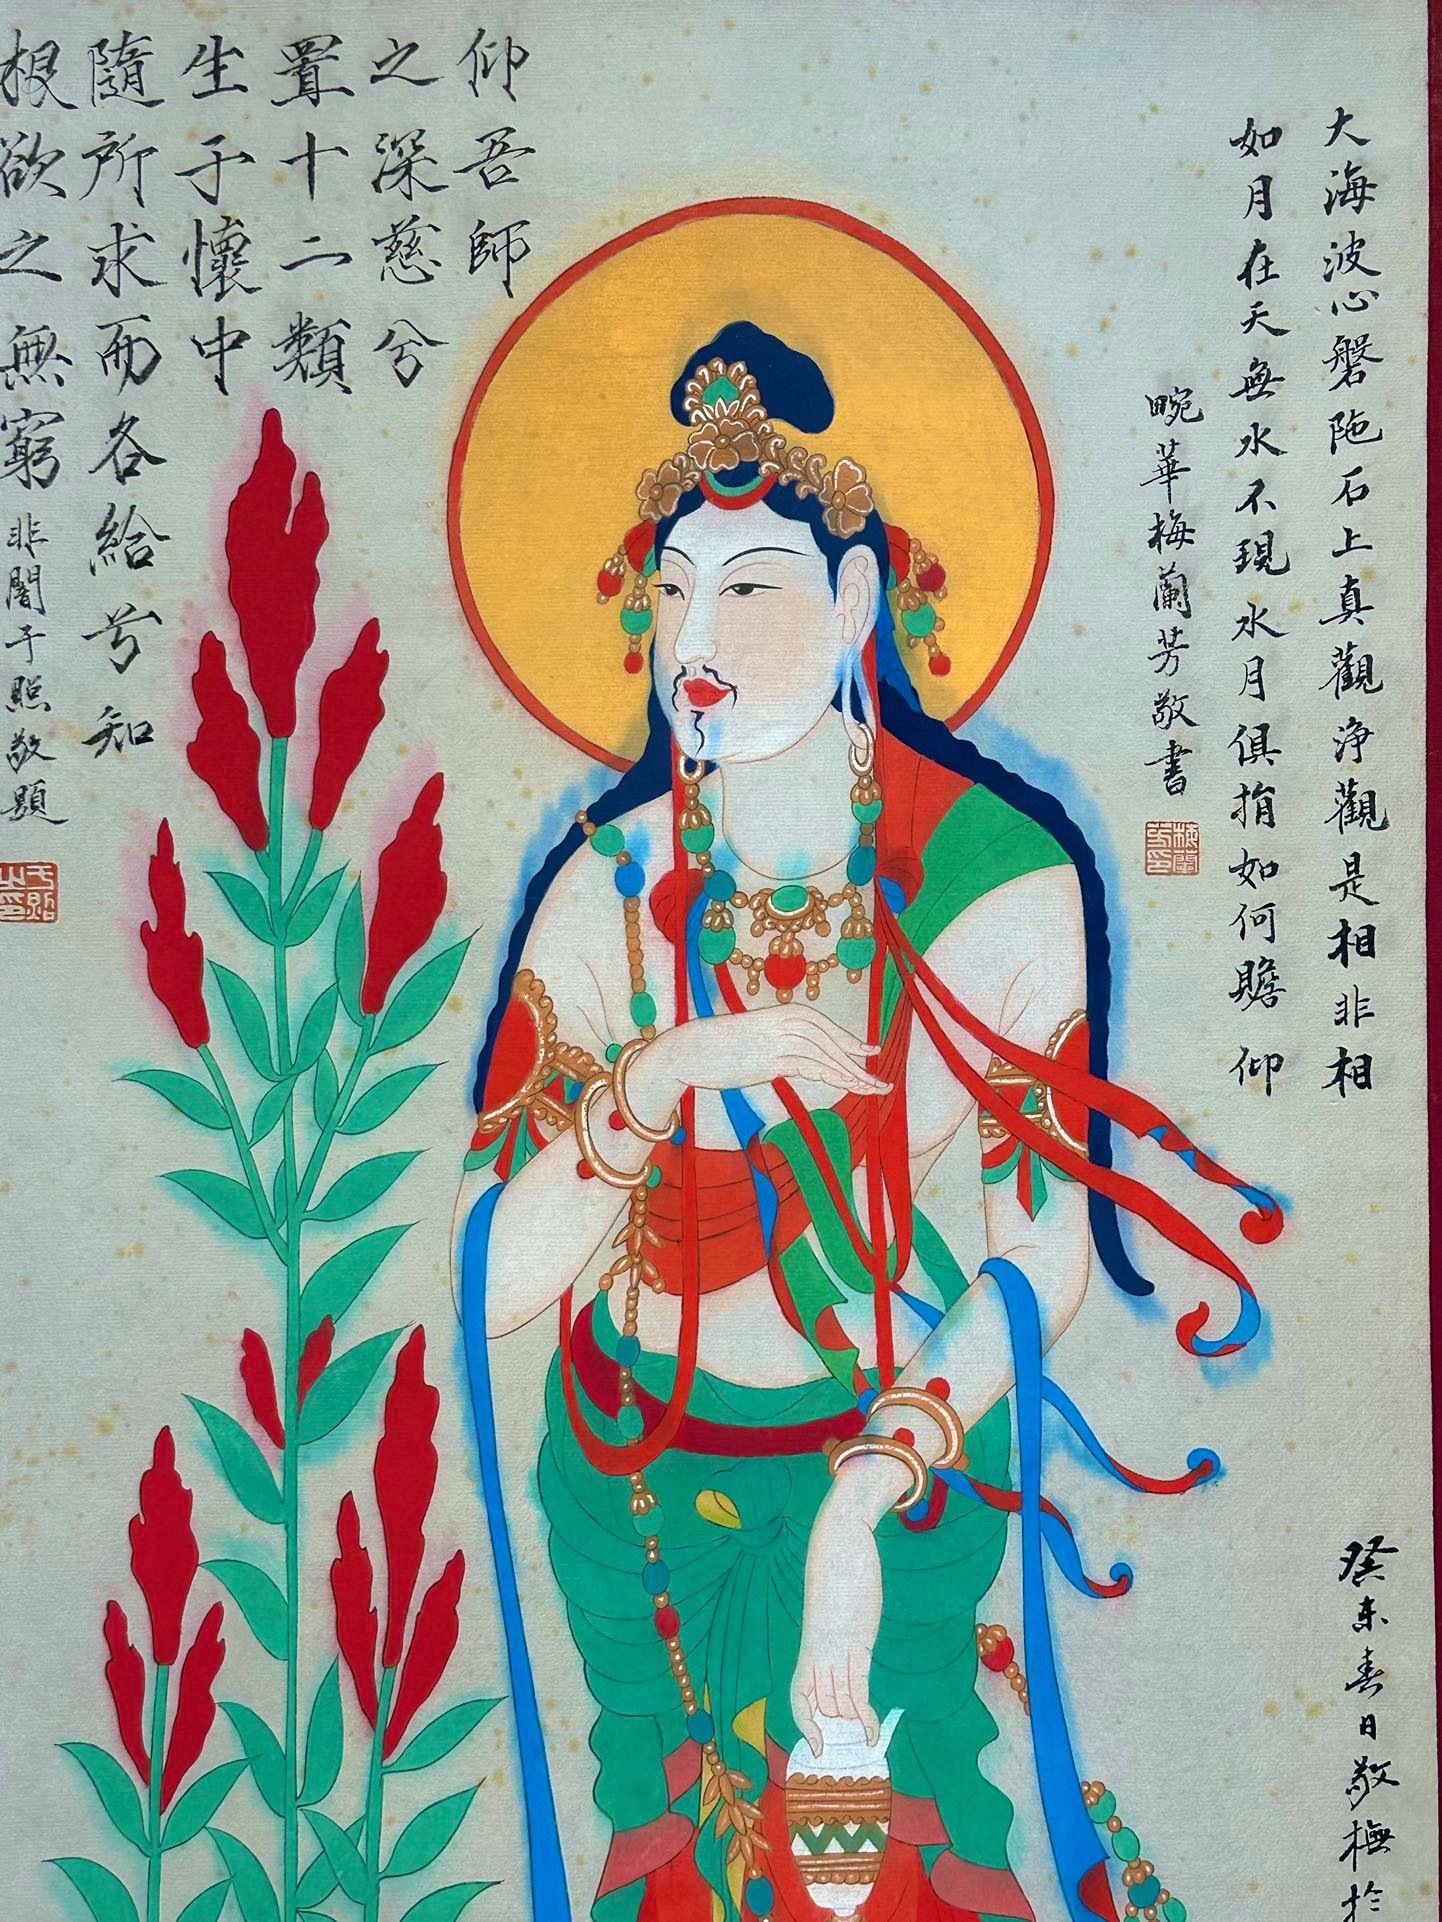 大海波心磐陁石上真觀淨觀是相非相
如月在天無水不現水月俱捐如何瞻仰
畹華梅蘭芳敬書
仰吾師
之深慈兮
置十二類
生于懷中
隨所求而各給兮知
根欲之無窮
非闇于照敬題
癸未春日敬橅於